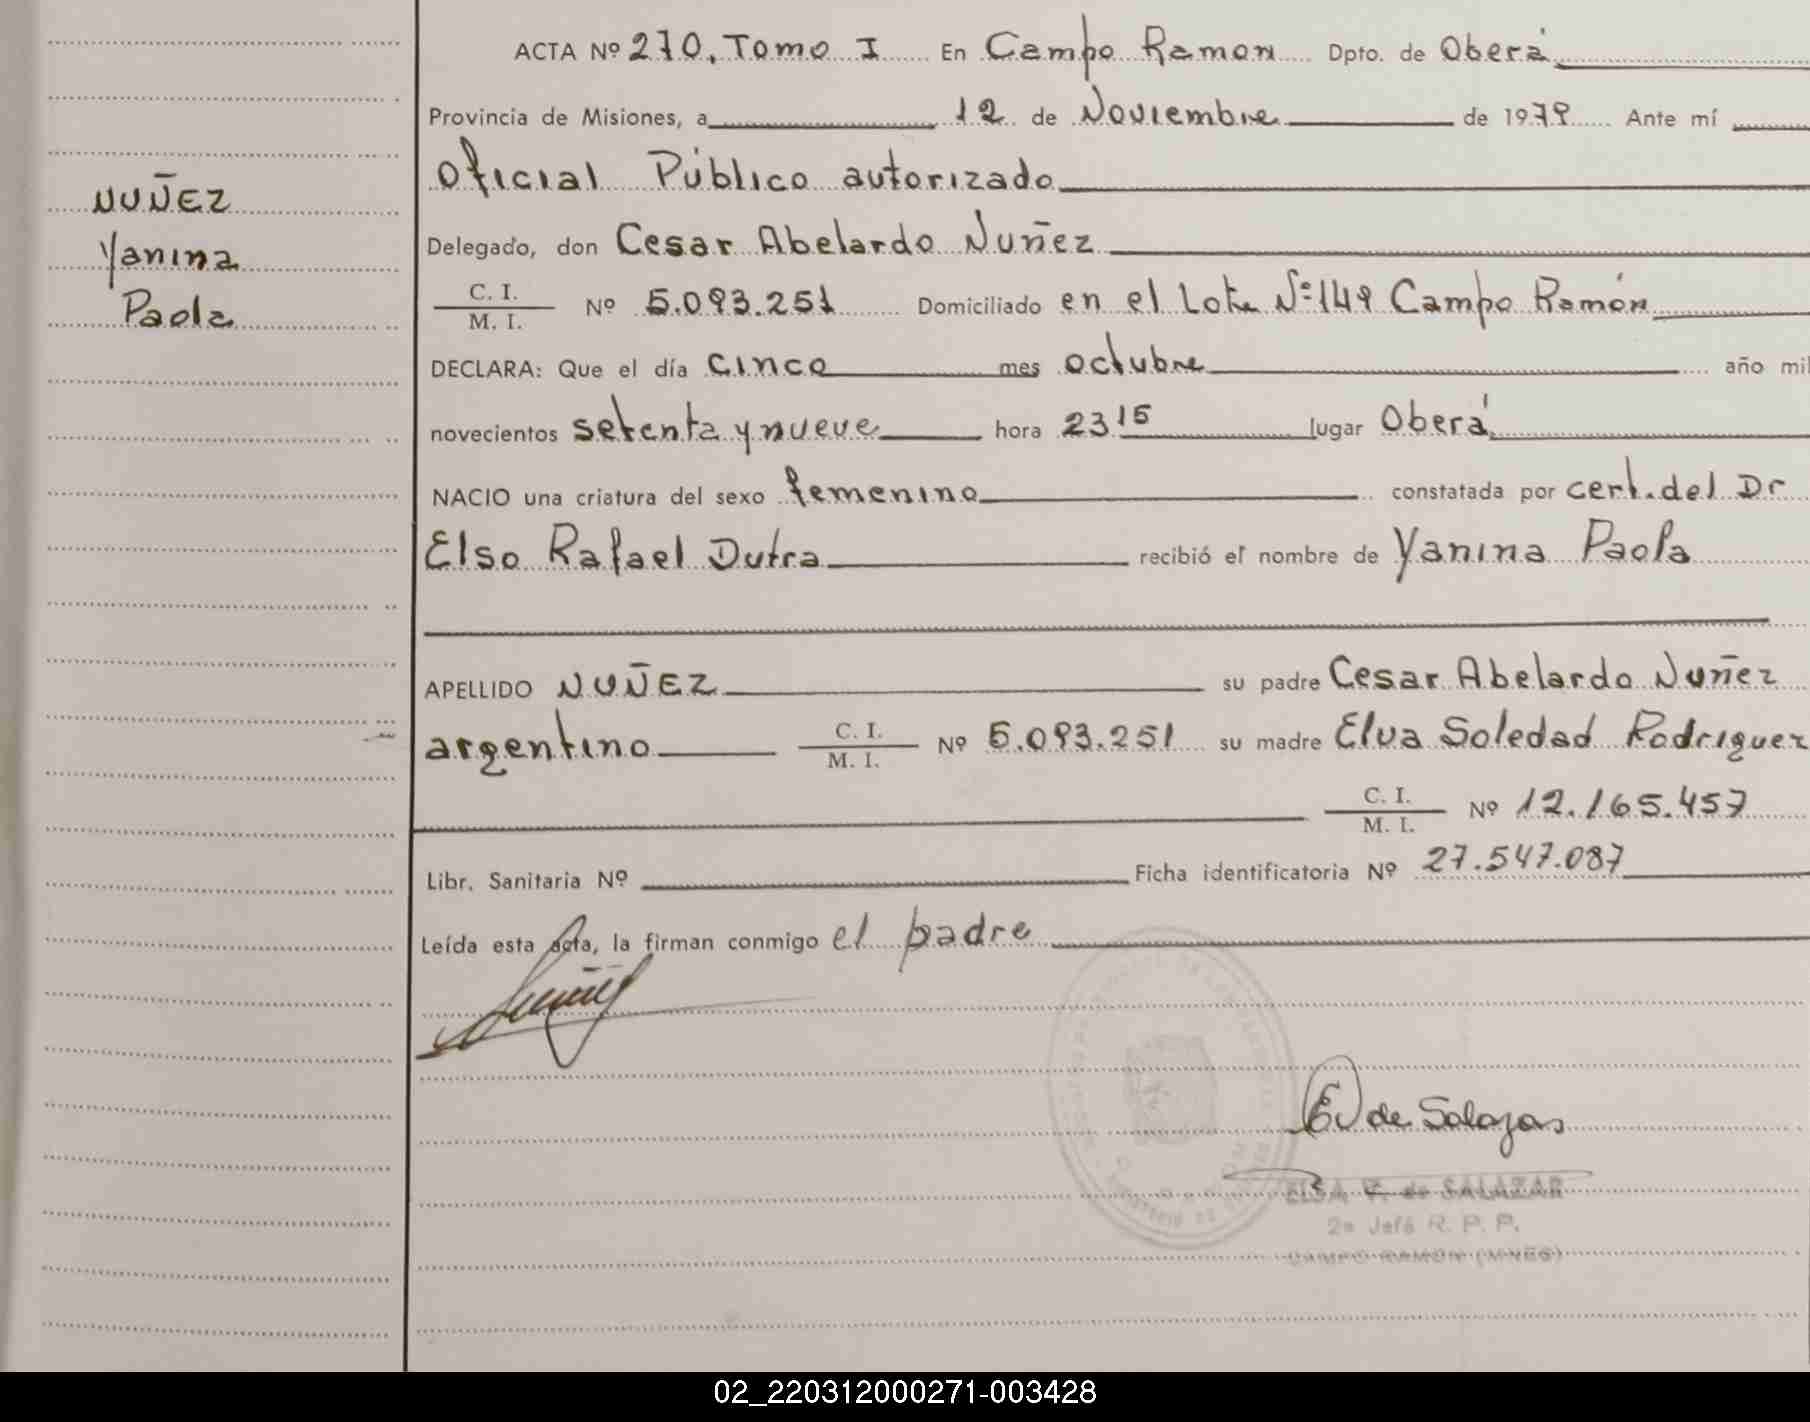 ACTA Nº 270, Tomo I En Campo Ramon Dpto. de Oberá
Provincia de Misiones, a 12 de Noviembre de 1979 Ante mí
Oficial Público autorizado
NUÑEZ
Delegado, don Cesar Abelardo Nuñez
Yanina
C. I.
M. I. Nº 5.093.251 Domiciliado en el Lote Nº 149 Campo Ramón
Paola
DECLARA: Que el día cinco mes octubre año mil
novecientos setenta y nueve hora 23 15 lugar Oberá
NACIO una criatura del sexo femenino constatada por cert. del Dr
Elso Rafael Dutra recibió el nombre de Yanina Paola
APELLIDO NUÑEZ su padre Cesar Abelardo Nuñez
argentino C. I.
M. I. Nº 5.093.251 su madre Elva Soledad Rodriguez
C. I.
M. I. Nº 12.165.457
Libr. Sanitaria Nº Ficha identificatoria Nº 27.547.087
Leída esta acta, la firman conmigo el padre
Nuñez
E V de Salazar
ELSA V. de SALAZAR
2a Jefa R. P. P.
CAMPO RAMON (MNES)
02_220312000271-003428